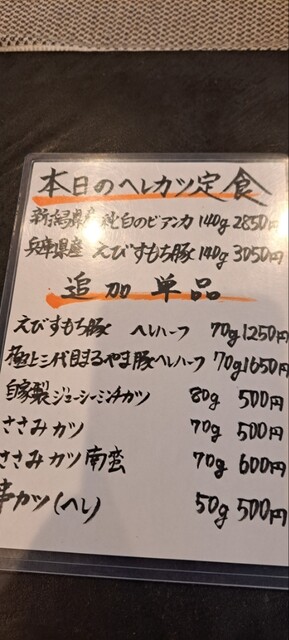 本日のヘレカツ定食
新潟県産 純白のビアンカ 140g 2850円
兵庫県産 えびすもち豚 140g 3050円
追加単品
えびすもち豚 ヘレハーフ 70g 1250円
極上三代目まるやま豚ヘレハーフ 70g 1650円
自家製ジューシーミンチカツ 80g 500円
ささみカツ 70g 500円
ささみカツ南蛮 70g 600円
串カツ(ヘレ) 50g 500円